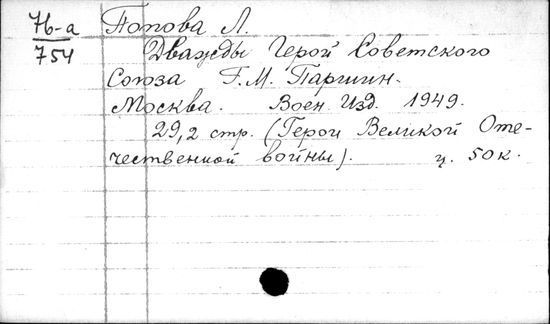 76-а
754
Попова Л.
Дважды Герой Советского
Союза Г.М. Паршин.
Москва. Воен. Изд. 1949.
29,2 стр. (Герои Великой Оте-
чественной войны). ц. 50к.